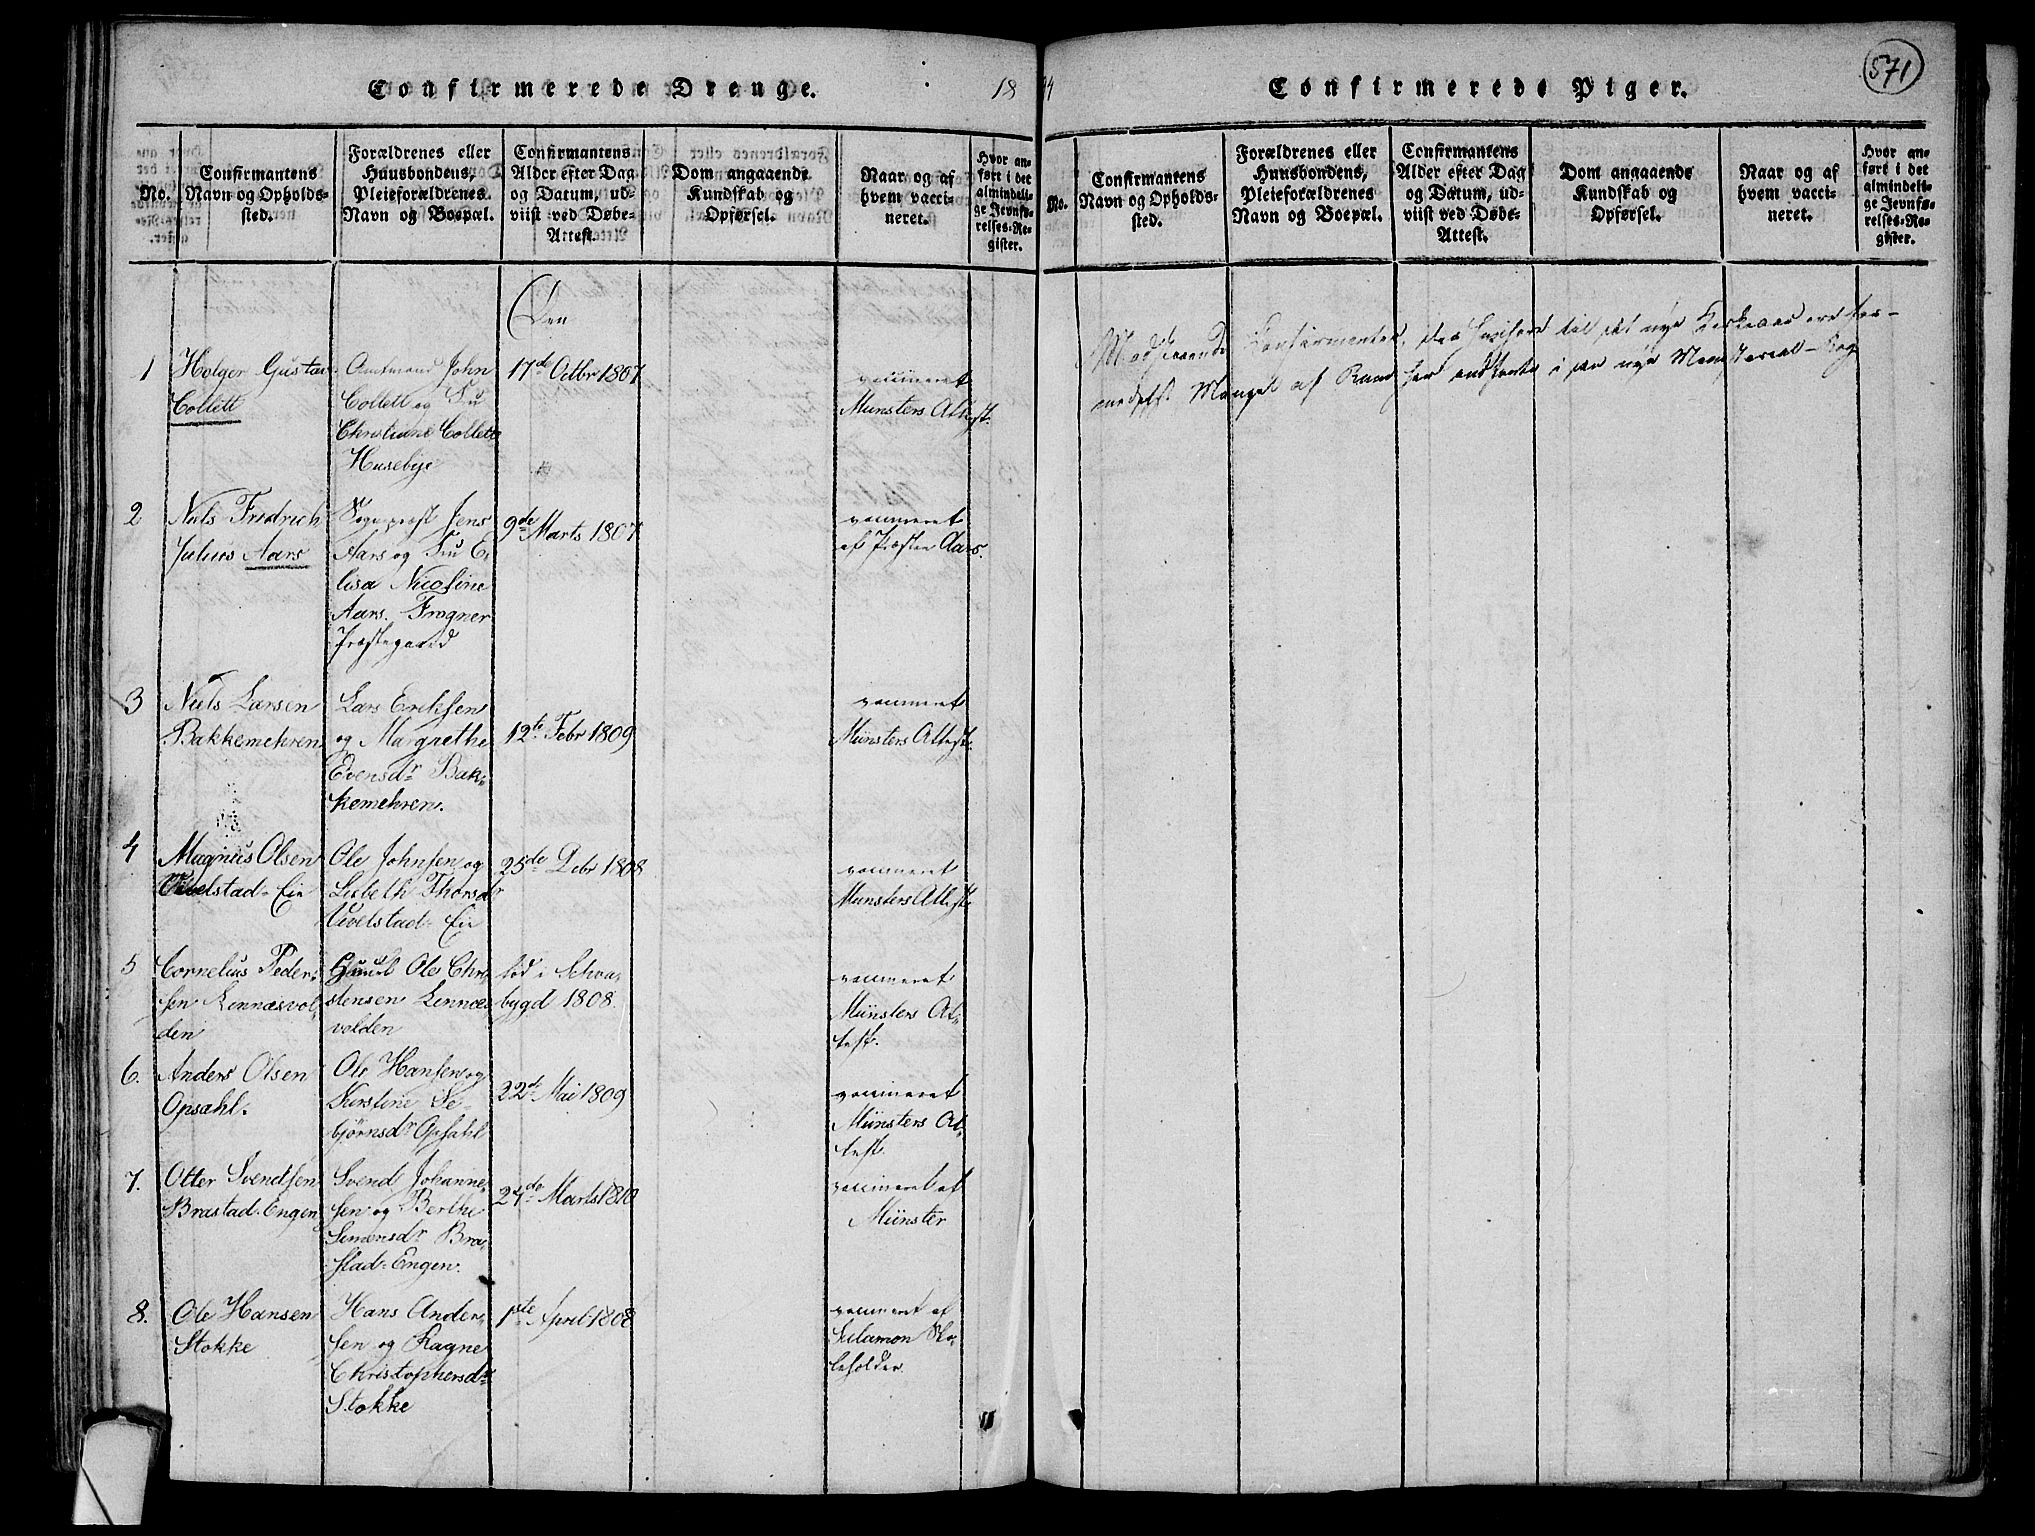 Confirmerede Drenge.
18
No.
Confirmantens
Navn og Opholds-
sted.
Forældrenes eller
Huusbondens,
Pleieforældrenes
Navn og Boepæl.
Confirmantens
Alder efter Dag
og Datum, ud-
viist ved Døbe-
Attest.
Dom angaaende
Kundskab og
Opførsel.
Naar og af
hvem vacci-
neret.
Hvor an-
ført i det
almindeli-
ge Jevnfø-
relses-Re-
gister.
Den
1
Holger Gustav
Collett
Amtmand John
Collett og Fru
Christiane Collett
Husebye
17de Octbr 1807
vaccineret
Münsters Attest.
2
Niels Fredrich
Julius Aars
Sognepræst Jens
Aars og Fru E-
lisa Nicoline
Aars. Frogner
Præstegaard
9de Marts 1807
vaccineret
af Præsten Aars.
3
Niels Larsen
Bakkemehren
Lars Eriksen
og Margrethe
Evensdr Bak-
kemehren.
12te Febr 1809
vaccineret
Münsters Attest.
4
Magnus Olsen
Uvelstad-Eie
Ole Johnsen og
Lisbeth Thorsdr
Uvelstad-Eie
25de Debr 1808
vaccineret
Münsters Attest
5
Cornelius Peder-
sen Lennæsvol-
den
Ole Chri-
stensen Lennæs
volden
fød i
bygd 1808.
vaccineret
Münsters At-
test.
6.
Anders Olsen
Opsahl.
Ole Hansen og
Kirstine Se-
bjørnsdr Opsahl
22de Mai 1809
vaccineret
Münsters At-
test.
7.
Otter Svendsen
Brastad-Engen
Svend Johanne-
sen og Berthe
Simensdr Bra-
stad-Engen.
27de Marts 1810
vaccineret af
Münster
8.
Ole Hansen
Stokke
Hans Ander-
sen og Ragne
Christophersdr
Stokke
1ste April 1808
vaccineret af
Salamon Sko-
leholder
24
Confirmerede Piger.
571
No.
Confirmantens
Navn og Opholds-
sted.
Forældrenes eller
Huusbondens,
Pleieforældrenes
Navn og Boepæl.
Confirmantens
Alder efter Dag
og Datum, ud-
viist ved Døbe-
Attest.
Dom angaaende
Kundskab og
Opførsel.
Naar og af
hvem vacci-
neret.
Hvor an-
ført i det
almindeli-
ge Jevnfø-
relses-Re-
gister.
Modstaaende Confirmenter, til det nye Kirkeaar ere for-
medelst Mangel af Rum her indførte i den nye Ministerial-Bog